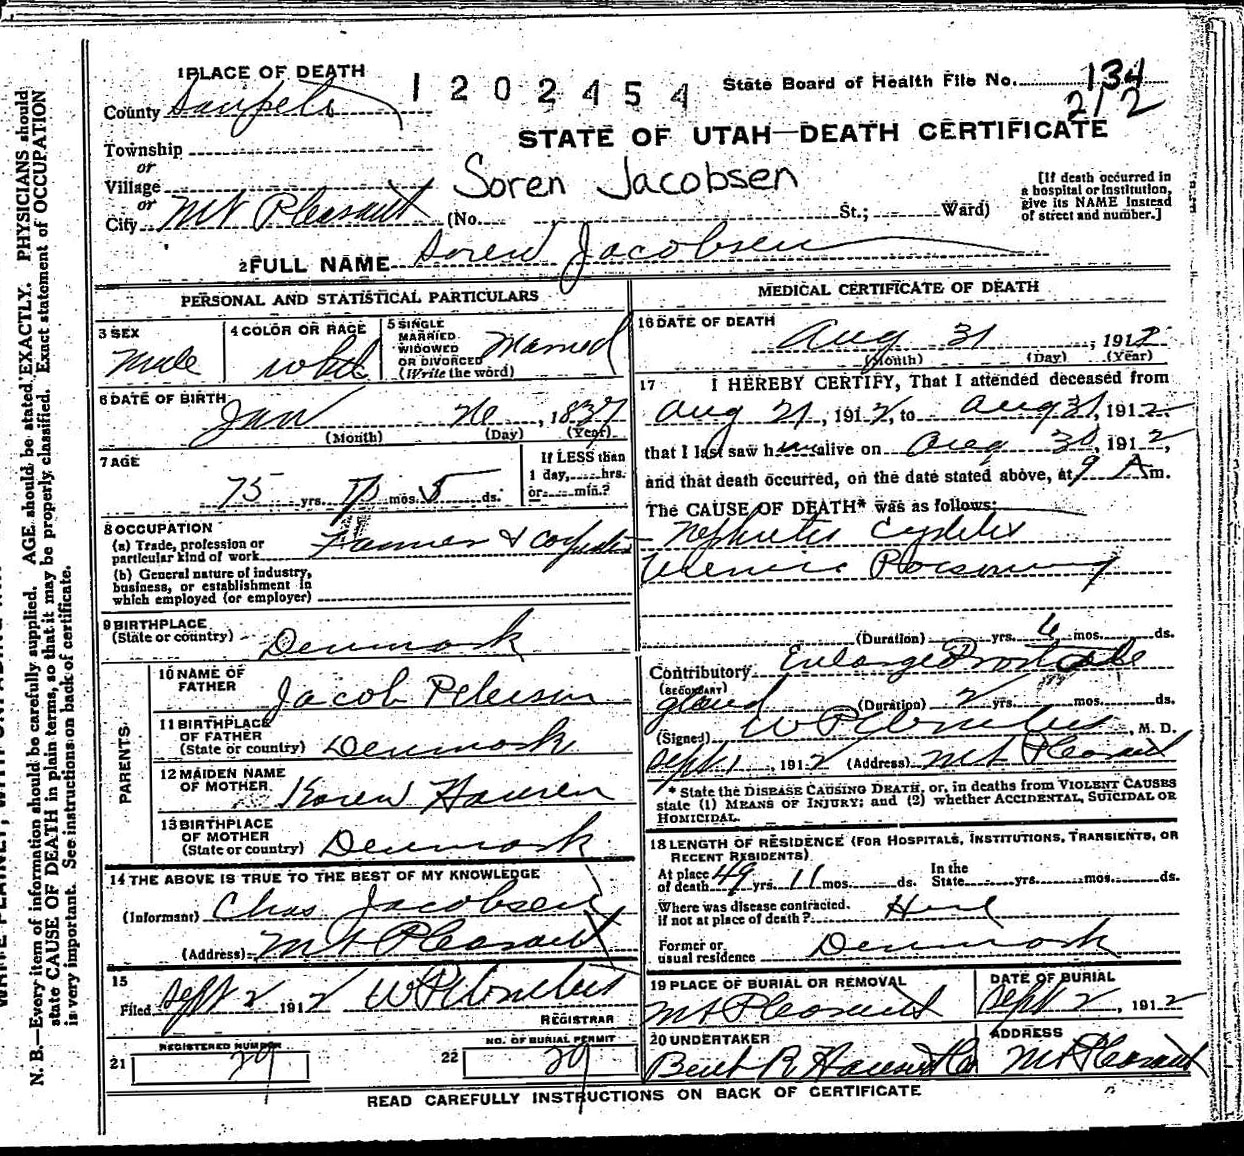 1 PLACE OF DEATH
1202454
State Board of Health File No. 134
212
County Sanpete
STATE OF UTAH—DEATH CERTIFICATE
Township
or
Village
Soren Jacobsen
[If death occurred in
a hospital or institution,
give its NAME instead
of street and number.]
or
City Mt Pleasant (No. St.; Ward)
2 FULL NAME Soren Jacobsen
PERSONAL AND STATISTICAL PARTICULARS
3 SEX
Male
4 COLOR OR RACE
5 SINGLE
MARRIED
WIDOWED
OR DIVORCED
(Write the word)
Married
6 DATE OF BIRTH
Jan 26, 1837
(Month) (Day) (Year)
7 AGE
75 yrs. 7 mos. 5 ds.
If LESS than
1 day, hrs.
or min.?
8 OCCUPATION
(a) Trade, profession or
particular kind of work Farmer &
(b) General nature of industry,
business, or establishment in
which employed (or employer)
9 BIRTHPLACE
(State or country) Denmark
PARENTS
10 NAME OF
FATHER Jacob Petersen
11 BIRTHPLACE
OF FATHER
(State or country) Denmark
12 MAIDEN NAME
OF MOTHER Karen Hansen
13 BIRTHPLACE
OF MOTHER
(State or country) Denmark
14 THE ABOVE IS TRUE TO THE BEST OF MY KNOWLEDGE
(Informant) Chas Jacobsen
(Address) Mt Pleasant
15
Filed Sept 2 1912
REGISTRAR
21 REGISTERED NUMBER
29
22 NO. OF BURIAL PERMIT
29
MEDICAL CERTIFICATE OF DEATH
16 DATE OF DEATH
Aug 31, 1912
(Month) (Day) (Year)
17 I HEREBY CERTIFY, That I attended deceased from
Aug 21, 1912, to Aug 31, 1912
that I last saw him alive on Aug 30, 1912,
and that death occurred, on the date stated above, at 9 A m.
The CAUSE OF DEATH* was as follows:
Nephritis Cystitis
Uremic Poisoning
(Duration) yrs. 6 mos. ds.
Contributory Enlarged Prostate
(SECONDARY)
gland (Duration) 2 yrs. mos. ds.
(Signed) M. D.
Sept 1, 1912 (Address) Mt Pleasant
* State the DISEASE CAUSING DEATH, or, in deaths from VIOLENT CAUSES
state (1) MEANS OF INJURY; and (2) whether ACCIDENTAL, SUICIDAL OR
HOMICIDAL.
18 LENGTH OF RESIDENCE (FOR HOSPITALS, INSTITUTIONS, TRANSIENTS, OR
RECENT RESIDENTS)
At place
of death 49 yrs. 11 mos. ds.
In the
State yrs. mos. ds.
Where was disease contracted.
if not at place of death? Here
Former or
usual residence Denmark
19 PLACE OF BURIAL OR REMOVAL
Mt Pleasant
DATE OF BURIAL
Sept 2, 1912
20 UNDERTAKER
Bent R. Hansen Co
ADDRESS
Mt Pleasant
READ CAREFULLY INSTRUCTIONS ON BACK OF CERTIFICATE
N. B.—Every item of information should be carefully supplied. AGE should be stated EXACTLY. PHYSICIANS should
state CAUSE OF DEATH in plain terms, so that it may be properly classified. Exact statement of OCCUPATION
is very important. See instructions on back of certificate.